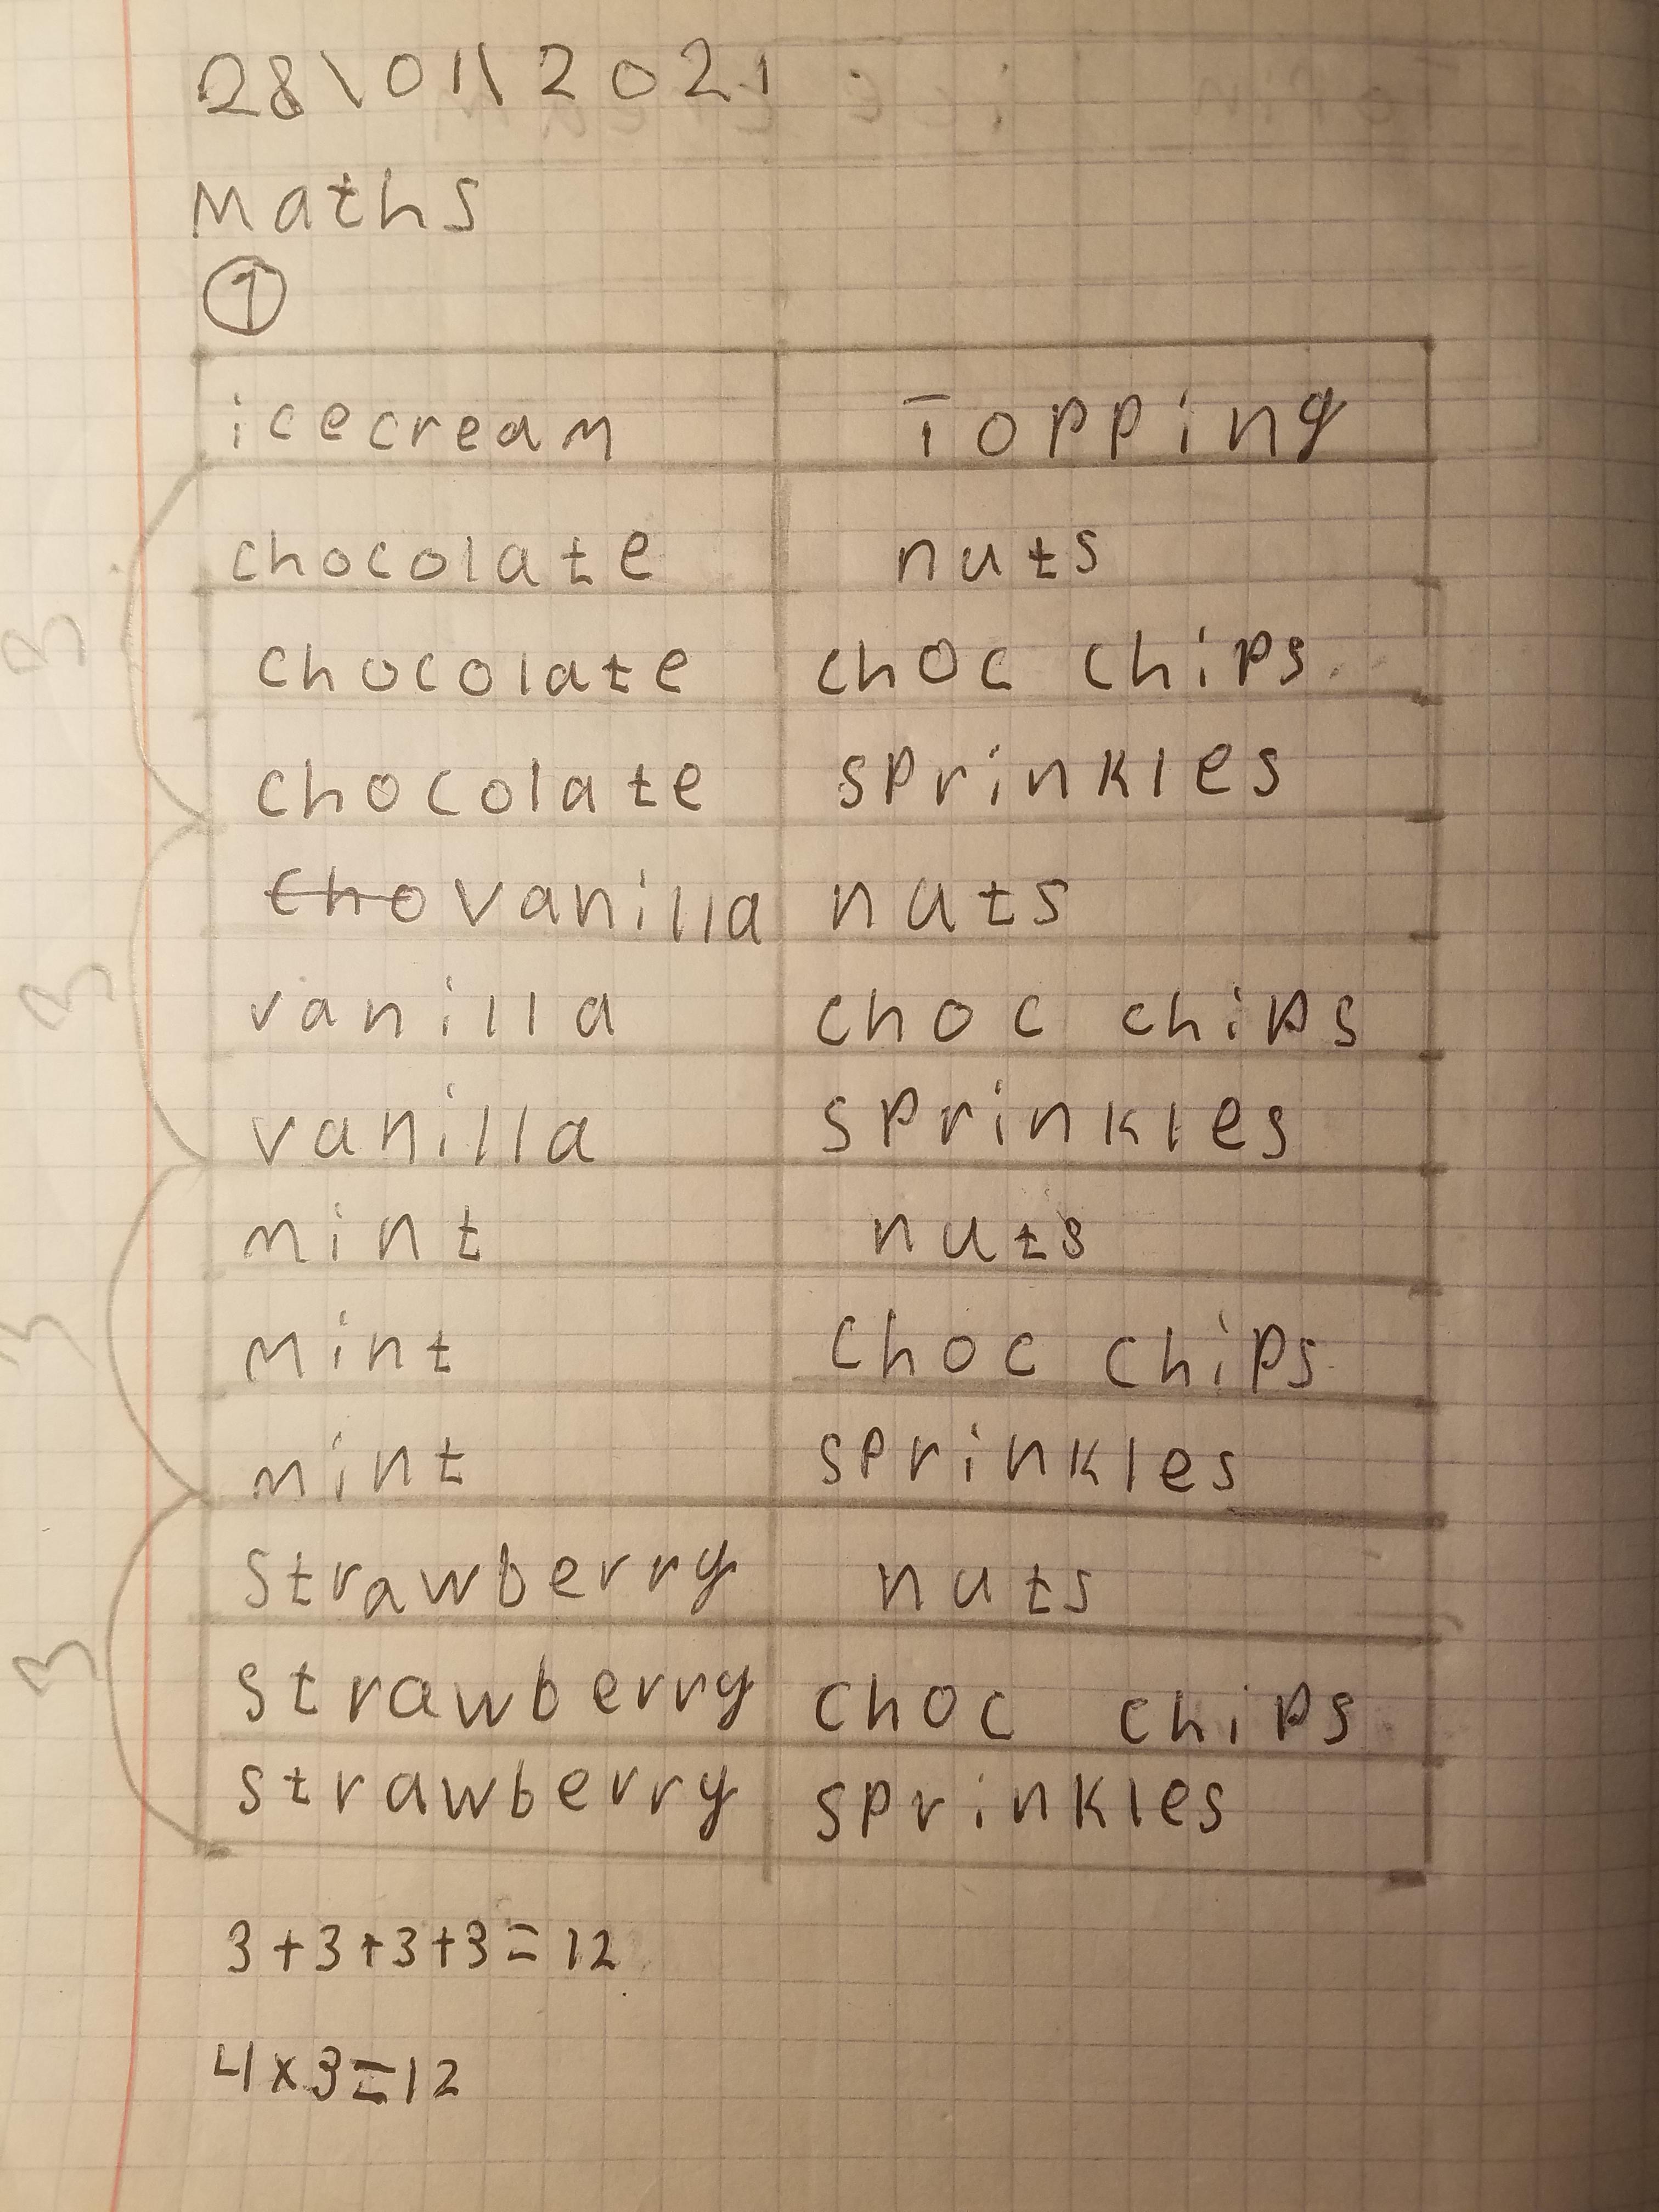 28\01\2021
Maths
1
icecream Topping
chocolate nuts
chocolate choc chips
chocolate sprinkles
cho vanilla nuts
vanilla choc chips
vanilla sprinkles
mint nuts
mint choc chips
mint sprinkles
strawberry nuts
strawberry choc chips
strawberry sprinkles
3
3
3
3
3+3+3+3=12
4x3=12